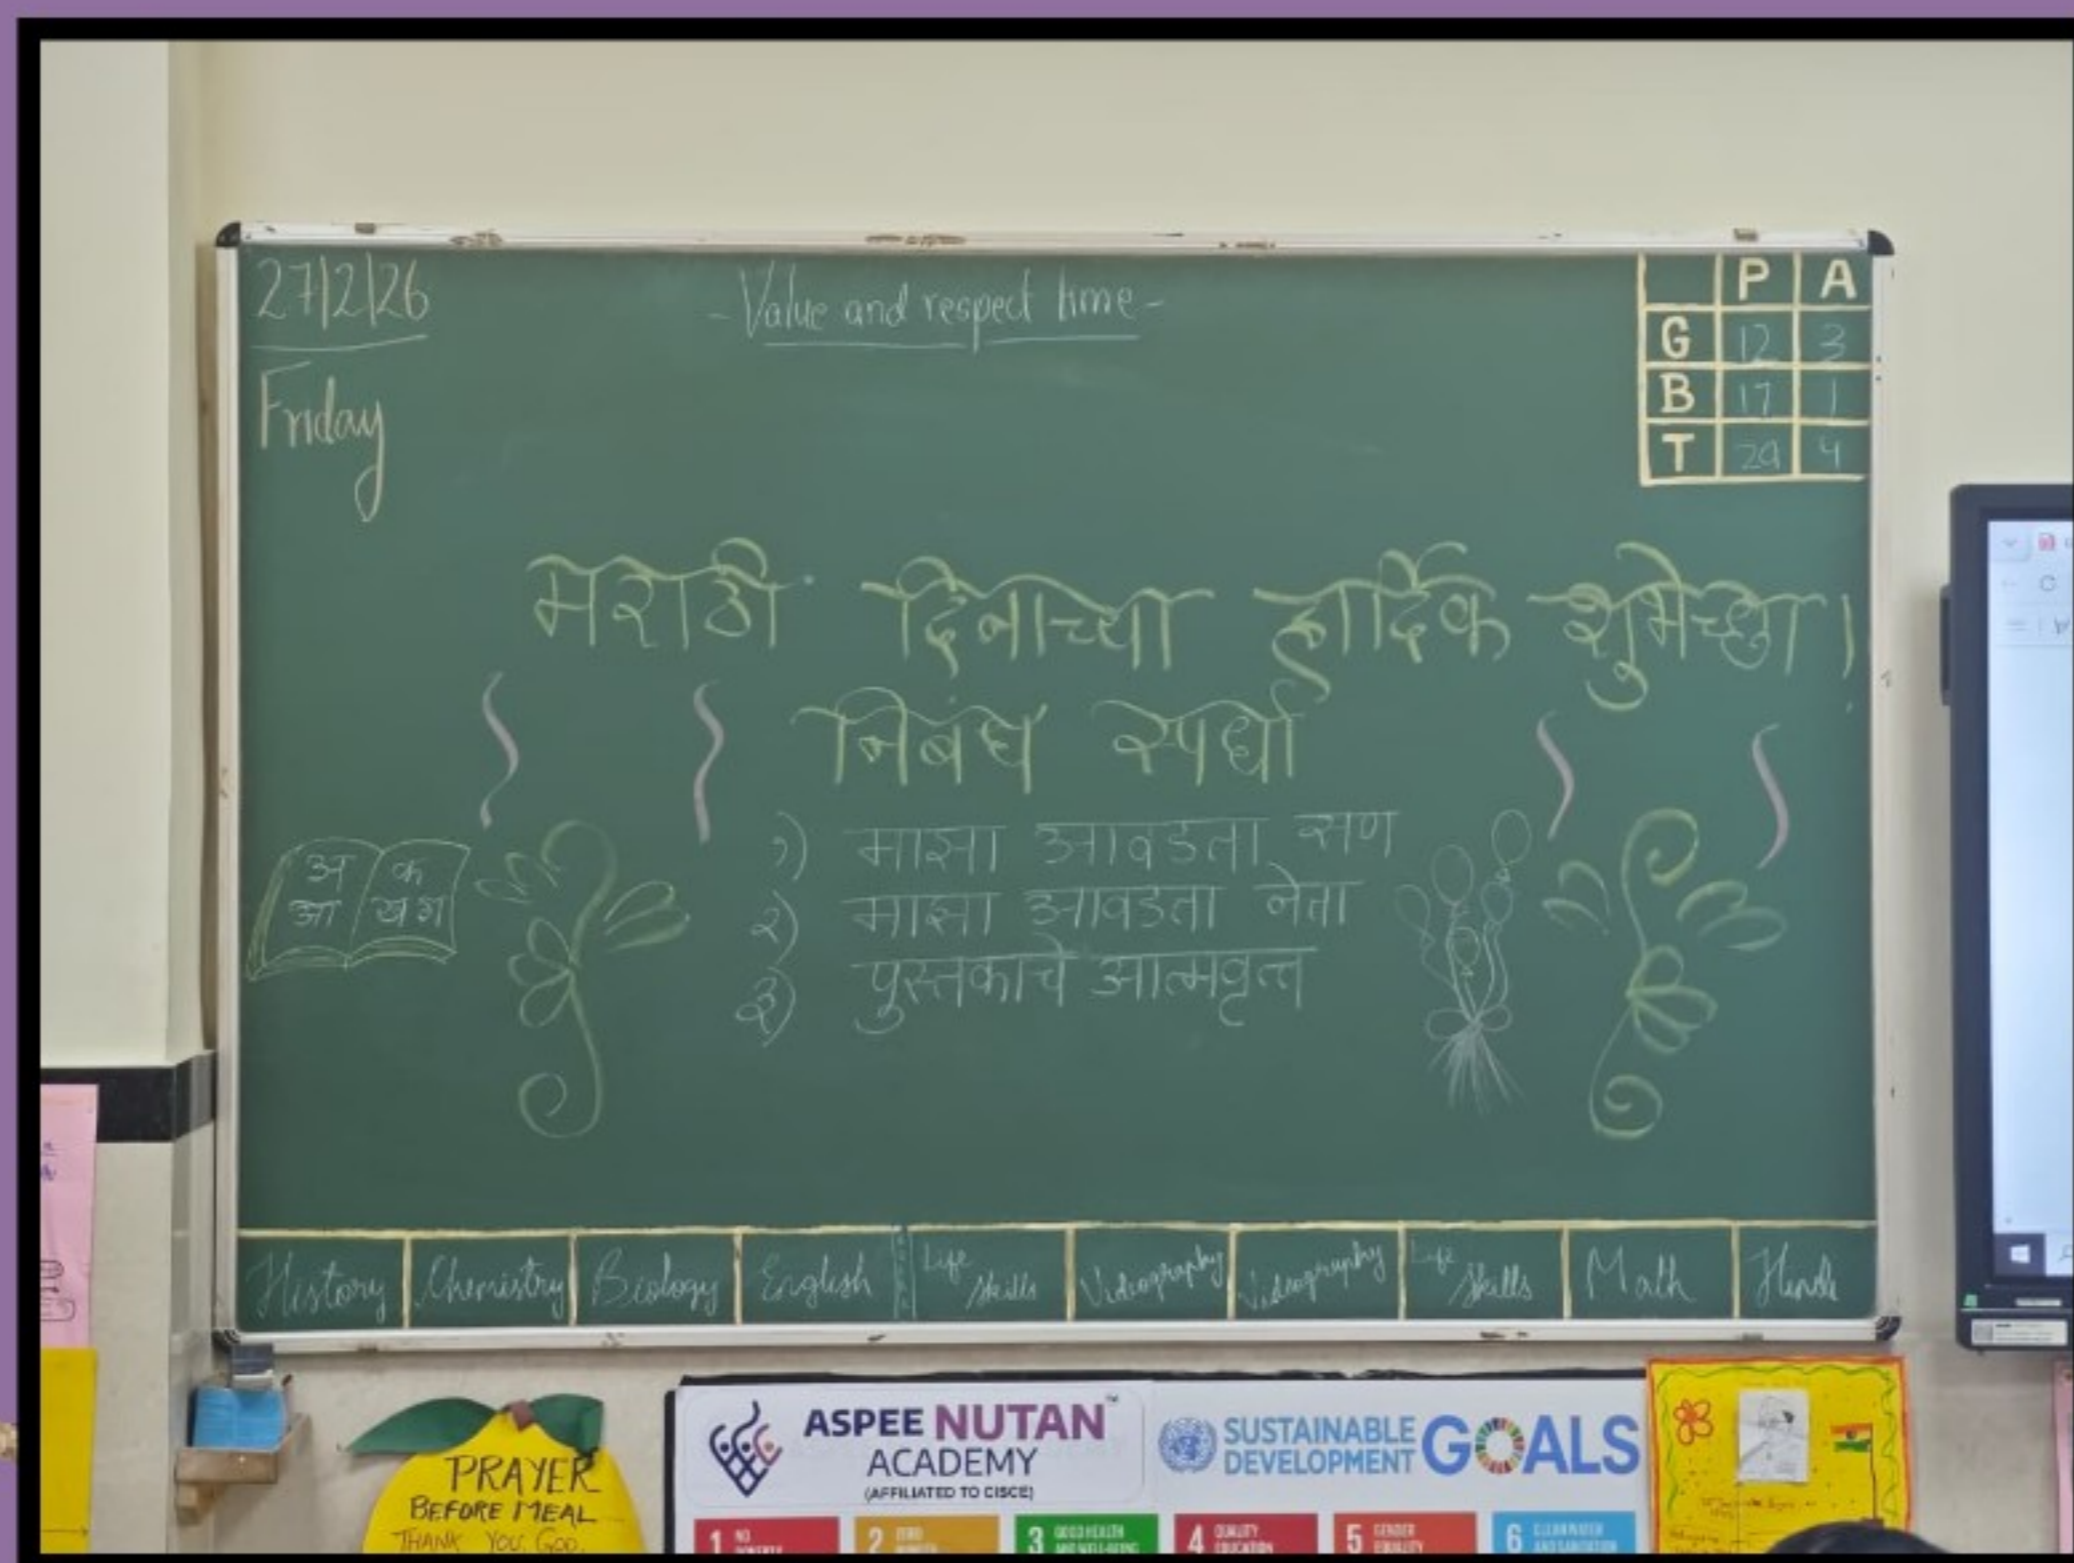 27/2/26
- Value and respect time -
Friday
P A
G 12 3
B 17 1
T 29 4
मराठी दिनाच्या हार्दिक शुभेच्छा !
निबंध स्पर्धा
१) माझा आवडता सण
२) माझा आवडता नेता
३) पुस्तकाचे आत्मवृत्त
अ क
आ ख ग
History Chemistry Biology English Life Skills Videography Videography Life Skills Math Hindi
PRAYER
BEFORE MEAL
THANK YOU, GOD.
ASPEE NUTAN
ACADEMY
(AFFILIATED TO CISCE)
SUSTAINABLE
DEVELOPMENT GOALS
1 NO POVERTY
2 ZERO HUNGER
3 GOOD HEALTH AND WELL-BEING
4 QUALITY EDUCATION
5 GENDER EQUALITY
6 CLEAN WATER AND SANITATION